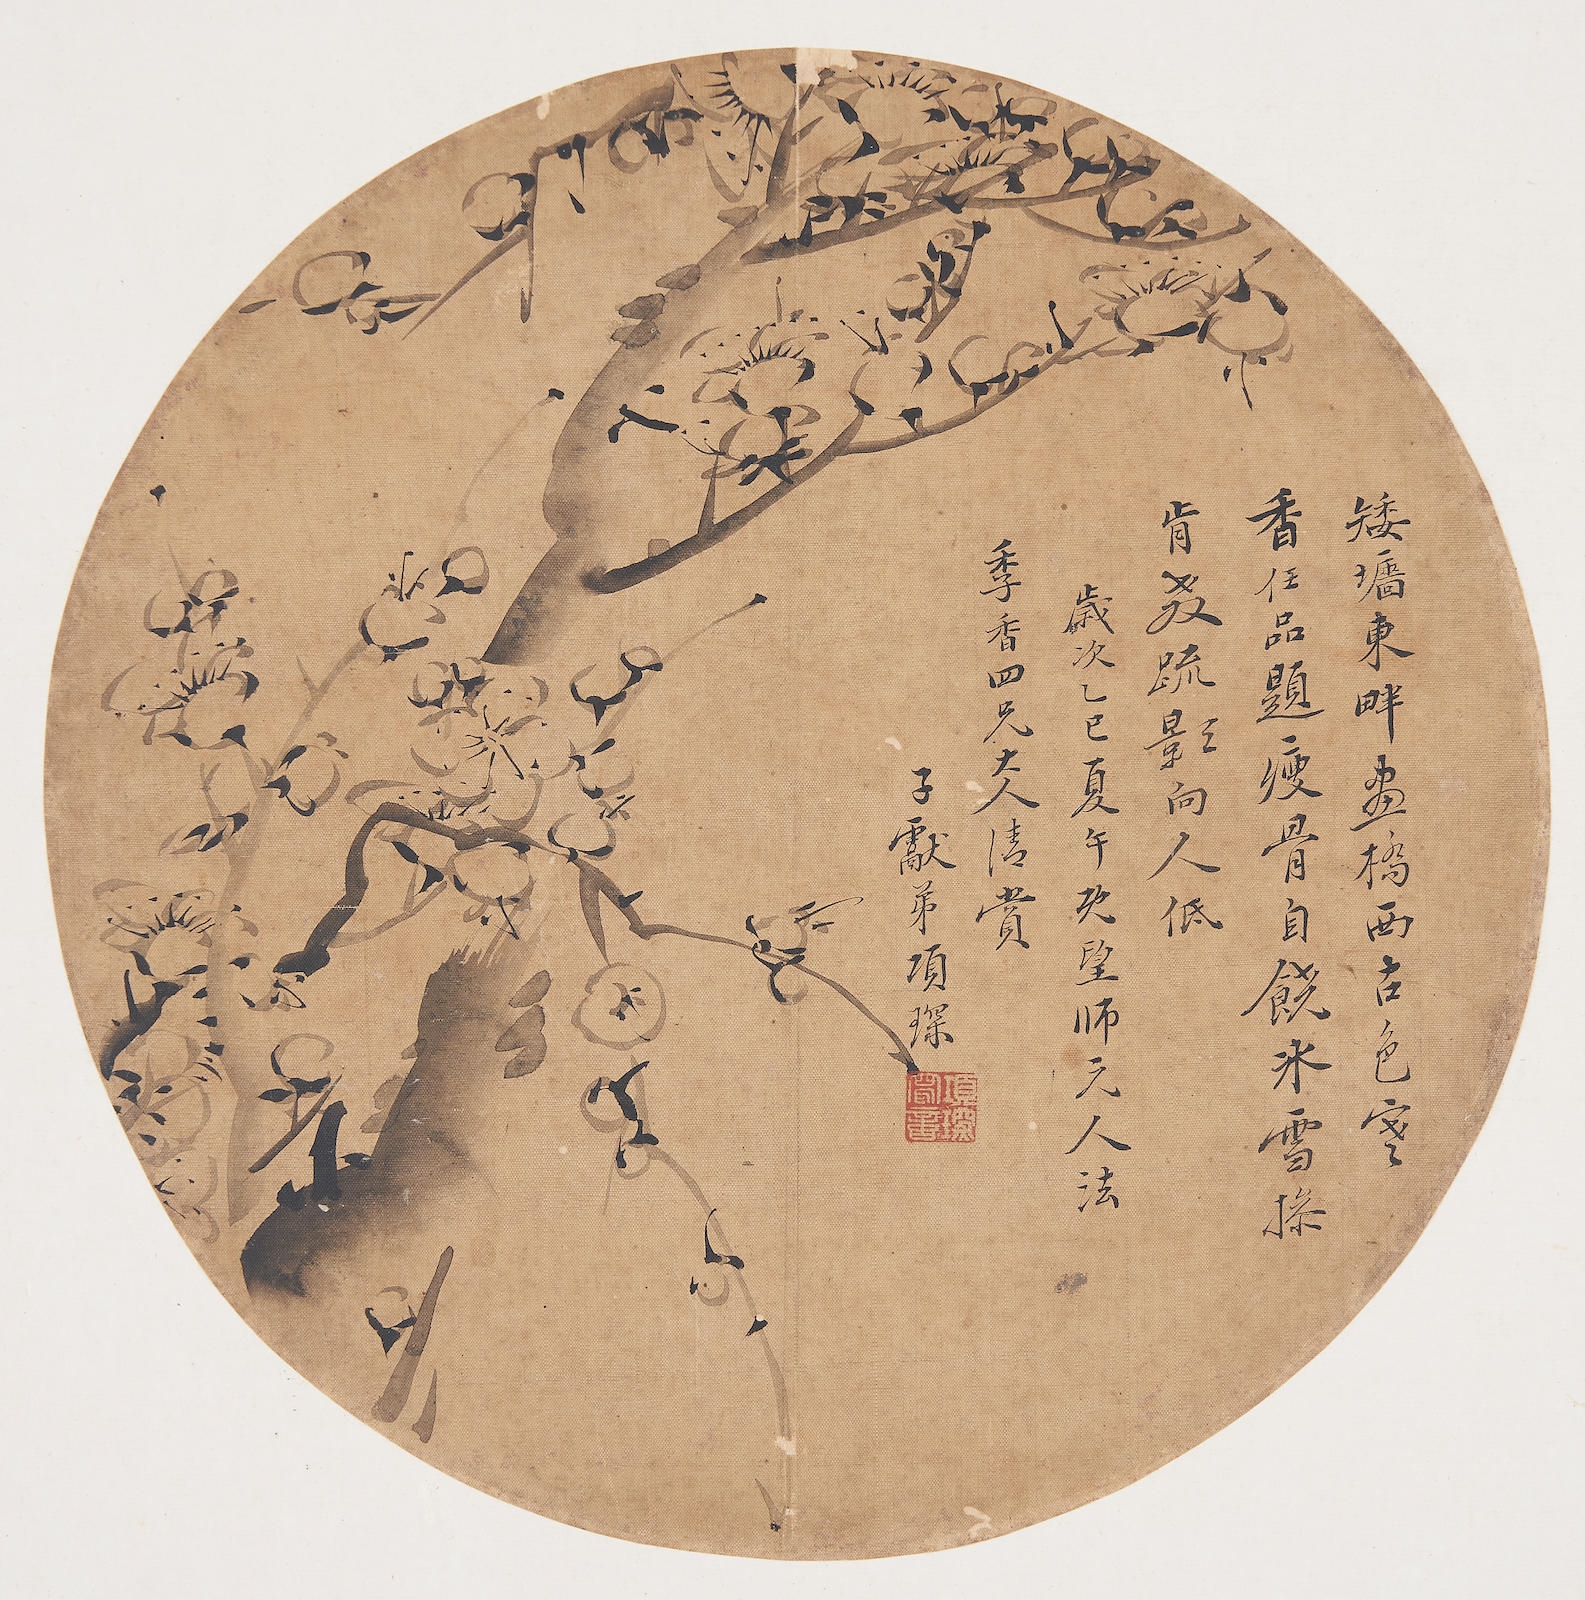 矮墻東畔畫橋西古色寒
香任品題瘦骨自饒氷雪操
肯教疏影向人低
歲次乙巳夏午既望師元人法
季香四兄大人清賞
子獻弟項琛
項琛